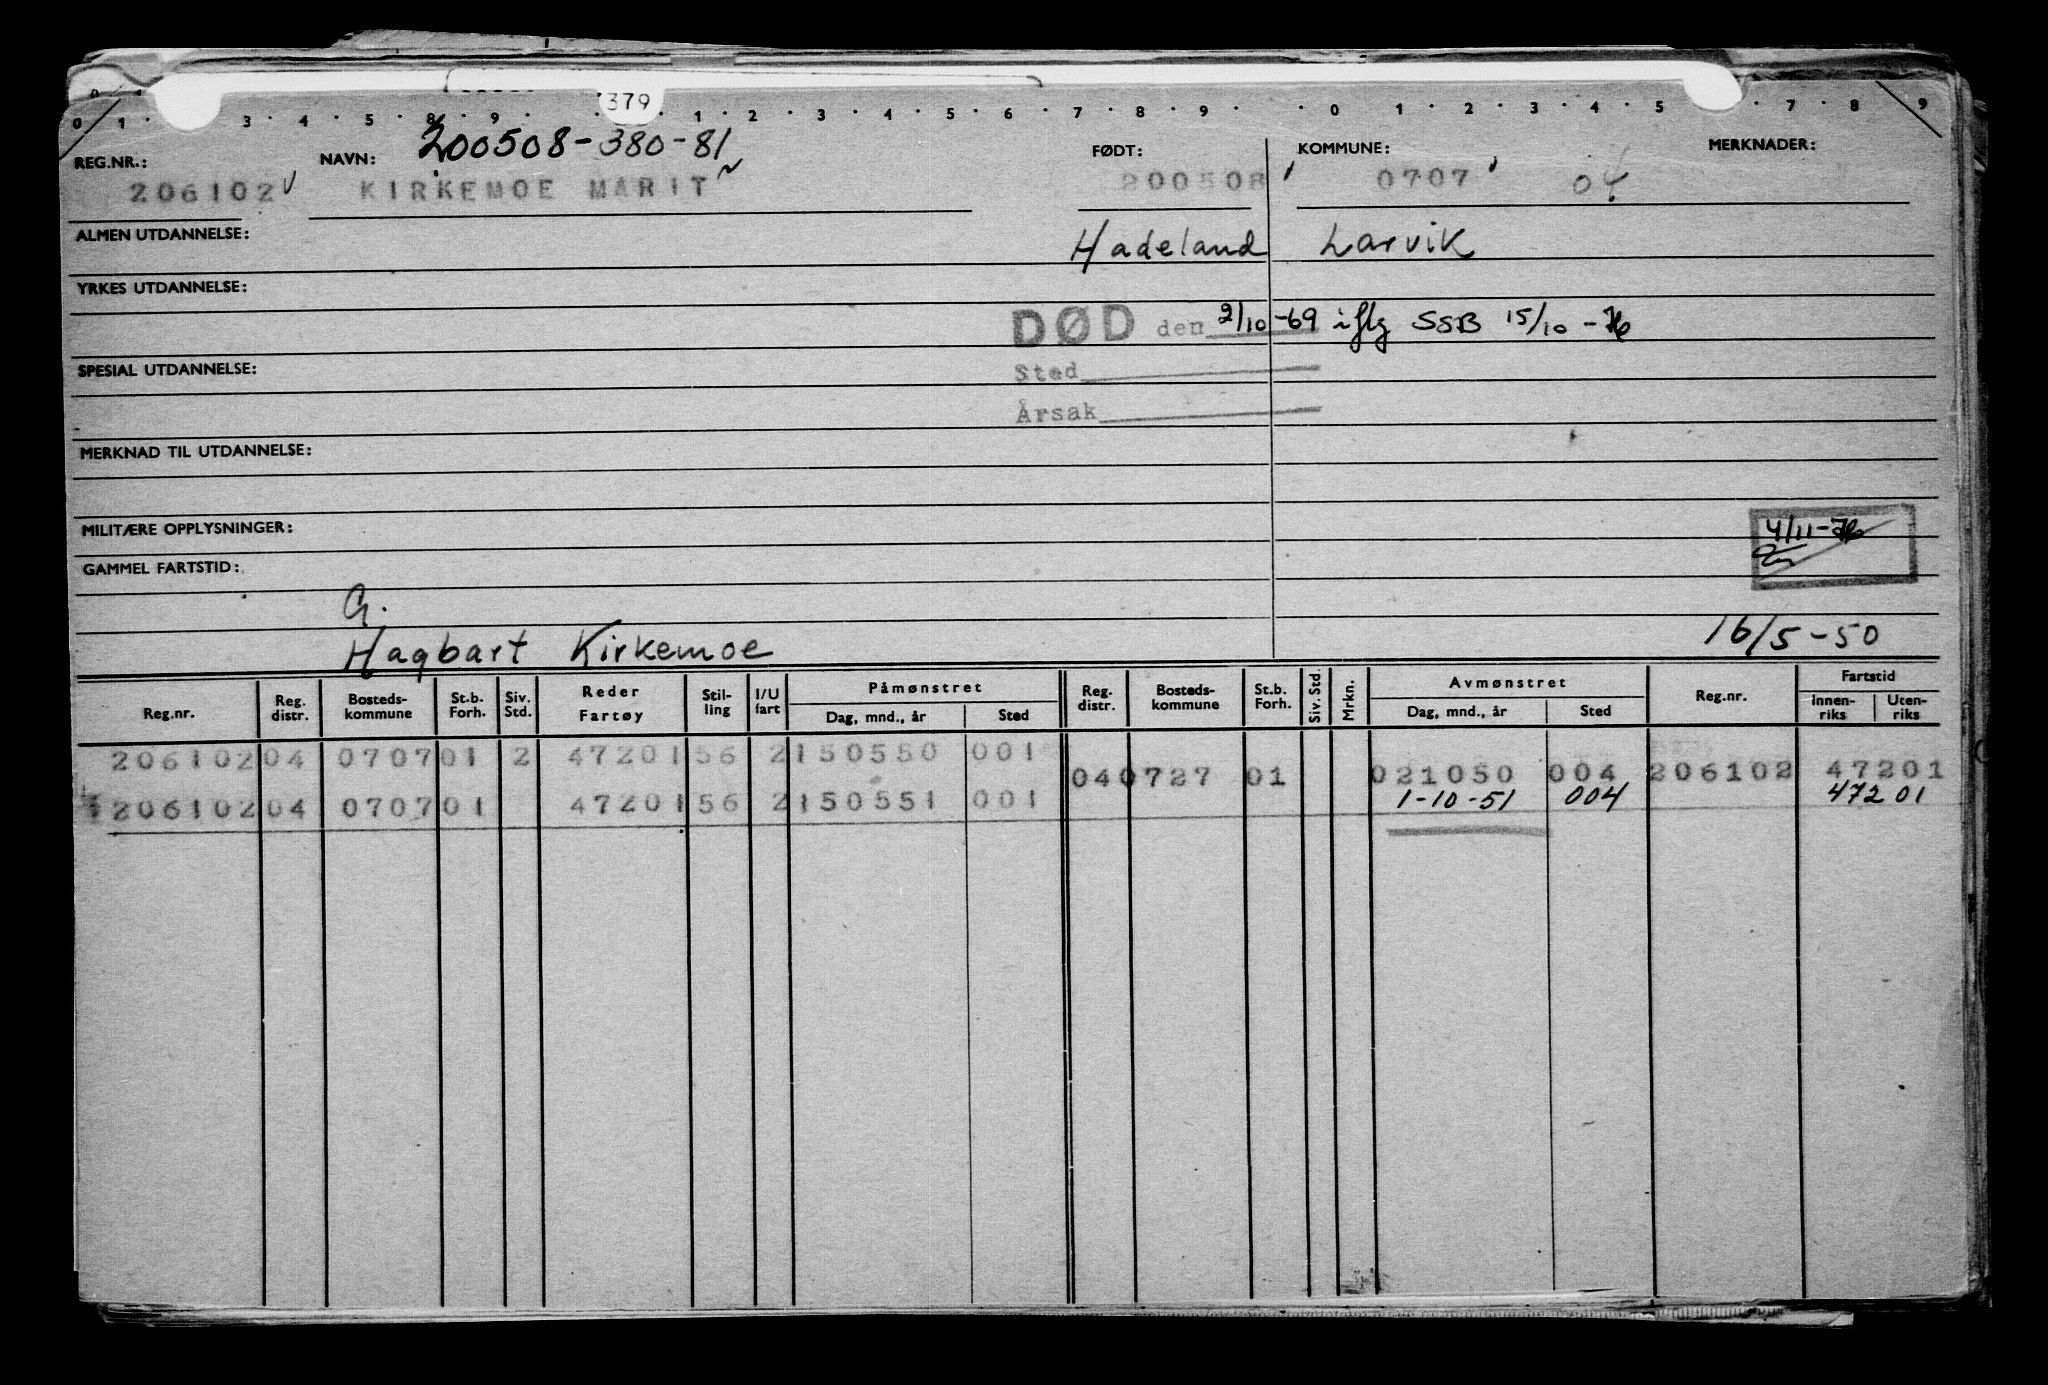 379
0 1 · 3 · 4 · 5 · 8 · 9 · 1 · 2 · 3 · 4 · 5 · 6 · 7 · 8 · 9 · · 0 · 1 · 2 · 3 · 4 · 5 · 7 · 8 · 9
200508-380-81
REG.NR.: NAVN: FØDT: KOMMUNE: MERKNADER:
206102 KIRKEMOE MARIT 200508 0707 04
ALMEN UTDANNELSE: Hadeland Larvik
YRKES UTDANNELSE:
DØD den 2/10-69 iflg SSB 15/10-76
SPESIAL UTDANNELSE: Sted
Årsak
MERKNAD TIL UTDANNELSE:
MILITÆRE OPPLYSNINGER: 4/11-76
GAMMEL FARTSTID:
G.
Hagbart Kirkemoe 16/5-50
Reg.nr. Reg. distr. Bosteds-kommune St.b. Forh. Siv. Std. Reder Fartøy Stil-ling I/U fart Påmønstret Dag, mnd., år Sted Reg. distr. Bosteds-kommune St.b. Forh. Siv. Std. Mrkn. Avmønstret Dag, mnd., år Sted Reg.nr. Fartstid Innen-riks Uten-riks
206102 04 0707 01 2 47201 56 2 150550 001
04 0727 01 021050 004 206102 47201
206102 04 0707 01 47201 56 2 150551 001 1-10-51 004 47201